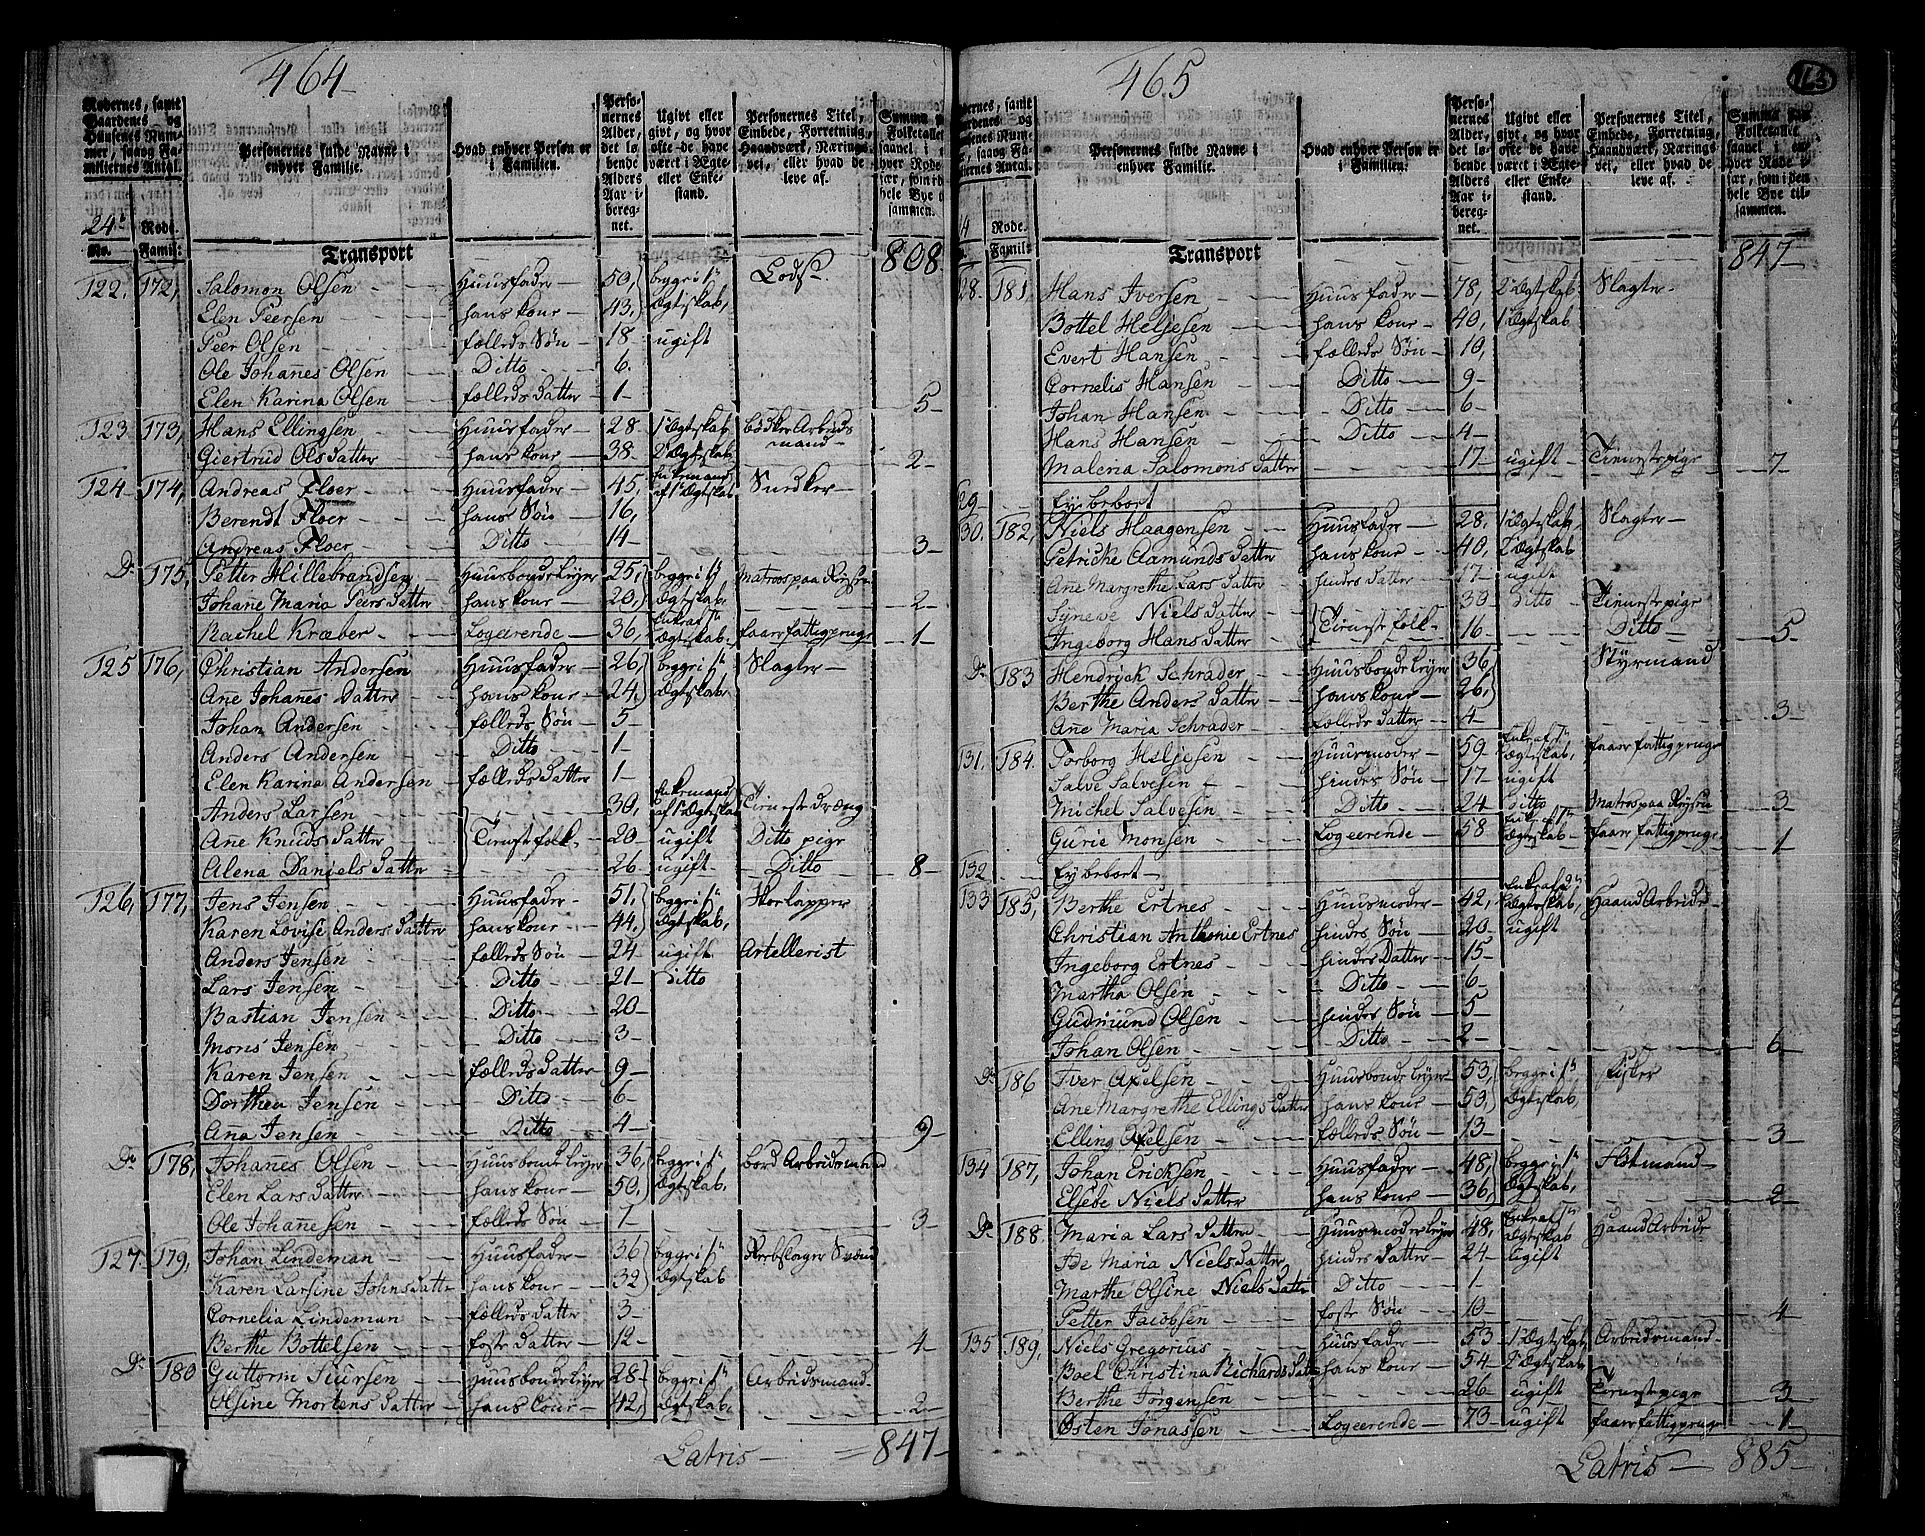 464
Rodernes, samt Gaardenes og Husenes Nummer, saavelsom Familiernes Antal.
Personernes fulde Navne i enhver Familie.
Hvad enhver Person er i Familien.
Personernes Alder, det løbende Alders Aar iberegnet.
Ugivt eller givt, og hvor ofte de have været i Ægte- eller Enkestand.
Personernes Titel, Embede, Forretning, Haandværk, Næringsvei, eller hvad de leve af.
24 Rode.
No. Famil: Transport 808
122. 172, Salomon Olsen Huusfader 50, begge i 1te Ægteskab, Lods
Elen Peersen hans kone 43,
Peer Olsen fælleds Søn 18 ugift
Ole Johannes Olsen Ditto 6.
Elen Karina Olsen fælleds datter 1 5
123 173, Hans Ellingsen Huusfader 28 1 Ægteskab Bødker Arbeids mand
Giertrud Olsdatter hans kone 38 2 Ægteskab 2
124 174, Andreas Floer Huusfader 45, Enkemand af 1te Ægteskab Snedker
Berendt Floer hans Søn 16,
Andreas Floer Ditto 14 3
Do 175, Petter Hillebrandsen Huusbonde Leyer 25, begge i 1te Ægteskab, Matros paa Reysen
Johane Maria Peersdatter hans kone 20, 2
Rachel Kræber Logeerende 36, Enke af 1te Ægteskab, faar fattigpenge 1
125 176, Christian Andersen Huusfader 26, begge i 1te Ægteskab, Slagter
Ane Johanes datter hans kone 24,
Johan Andersen fælleds Søn 5
Anders Andersen Ditto 1
Elen Karina Andersen fælleds datter 1
Anders Larsen 30, Enkemand af 1te Ægteskab Tieneste dreng
Ane Knuds datter Tieneste folk 20 ugift Ditto pige
Alena Daniels datter 26 ugift Ditto 8
126, 177, Jens Jensen Huusfader 51, begge i 1te Ægteskab, Skoelapper
Karen Lovise Anders datter hans kone 44,
Anders Jensen fælleds Søn 24 ugift Artellerist
Lars Jensen Ditto 21 Ditto
Bastian Jensen Ditto 20
Mons Jensen Ditto 3
Karen Jensen fælleds datter 9
Dorthea Jensen Ditto 6
Ana Jensen Ditto 4 9
Do 178, Johanes Olsen Huusbonde Leyer 36, begge i 1te Ægteskab, bord Arbeidsmand
Elen Lars datter hans kone 50,
Ole Johannesen fælleds Søn 7 3
127. 179, Johan Lindeman Huusfader 36 begge i 1te Ægteskab Reebslager Svend
Karen Larsine Johnsdatter hans kone 32
Cornelia Lindeman fælleds datter 3
Berthe Bottelsen foster datter 12 4
Do 180 Guttorm Siursen Huusbonde Leyer 28 begge i 1te Ægteskab, Arbeidsmand
Olsine Mortens datter hans kone 42, 2
Latris 847
465
163
Personernes fulde Navne i enhver Familie.
Hvad enhver Person er i Familien.
Personernes Alder, det løbende Alders Aar iberegnet.
Ugivt eller givt, og hvor ofte de have været i Ægte- eller Enkestand.
Personernes Titel, Embede, Forretning, Haandværk, Næringsvei, eller hvad de leve af.
4 Rode.
Famil: Transport 847
28. 181, Hans Iversen Huusfader 78, 2 Ægteskab Slagter
Bottel Helgesen hans kone 40, 1 Ægteskab
Evert Hansen fælleds Søn 10,
Cornelis Hansen Ditto 9
Johan Hansen Ditto 6
Hans Hansen Ditto 4
Malena Salomons datter 17 ugift Tienestepige 7
29 Ey beboet
30. 182, Niels Haagensen Huusfader 28, 1 Ægteskab, Slagter
Petricke Aamunds datter hans kone 40, 2 Ægteskab
Ane Margrethe Lars datter hindes datter 17 ugift
Syneve Niels datter Tieneste folk 30 Ditto Tienestepige
Ingeborg Hans datter 16 Ditto 5
Do 183 Hendrick Schrader Huusbonde Leyer 36, Styrmand
Berthe Anders datter hans kone 26,
Ane Maria Schrader fælleds datter 4 3
131. 184. Torborg Helgesen Huusmoder 59 Enke af 1te Ægteskab, faar fattigpenge
Salve Salvesen hindes Søn 17 ugift
Michel Salvesen Ditto 24 Ditto Matros paa Reysen 3
Gurie Monsen Logeerende 58 Enke af 1te Ægteskab faar fattigpenge 1
132 Ey beboet
133 185, Berthe Ertnes Huusmoder 42, Enke af 2den Ægteskab, Haand Arbeide
Christian Anthonie Ertnes hindes Søn 20 ugift
Ingeborg Ertnes hindes Datter 15
Martha Olsen Ditto 6
Gudmund Olsen hindes Søn 5
Johan Olsen Ditto 2 6
Do 186 Iver Axelsen Huusbonde Leyer 53, begge i 1te Ægteskab, Fisker
Ane Margrethe Ellings datter hans kone 50,
Elling Axelsen fælleds Søn 13 3
134 187, Johan Ericksen Huusfader 48, begge i 1te Ægteskab, Flotmand
Elsebe Niels datter hans kone 36, 2
Do 188. Maria Lars datter Huusmoder Leyer 48, Enke af 1te Ægteskab Haand Arbeide
Ide Maria Nielsdatter hindes datter 24 ugift
Marthe Olsine Nielsdatter Ditto 1
Petter Jacobsen foster Søn 10 4
135 189, Niels Gregorius Huusfader 53 1 Ægteskab, Arbeidsmand
Boel Christina Richardsdatter hans kone 54 2 Ægteskab,
Berthe Jørgensen 26 ugift Tienestepige 3
Østen Jonassen Logeerende 73 ugift faar fattigpenge 1
Latris 885